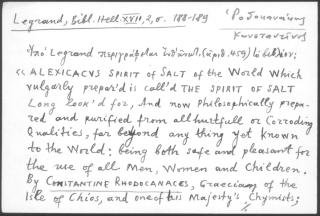 Legrand, Bibl. Hell. XVII, 2, σ. 188-189
Ῥοδοκανάκης
Κωνσταντῖνος
Ὑπὸ Legrand περιγράφεται (ἀριθ. 459) τὸ βιβλίον:
« ALEXICACVS SPIRIT OF SALT of the World Which
vulgarly prepar'd is call'd THE SPIRIT OF SALT
Long look'd for, And now Philosophically prepa-
red and purified from all hurtfull or Corroding
Qualities, far beyond any thing yet known
to the World: being both safe and pleasant for
the use of all Men, Women and Children.
By CONSTANTINE RHODOCANACES, Graecian of the
Isle of Chios, and one of his Majesty's Chymists;